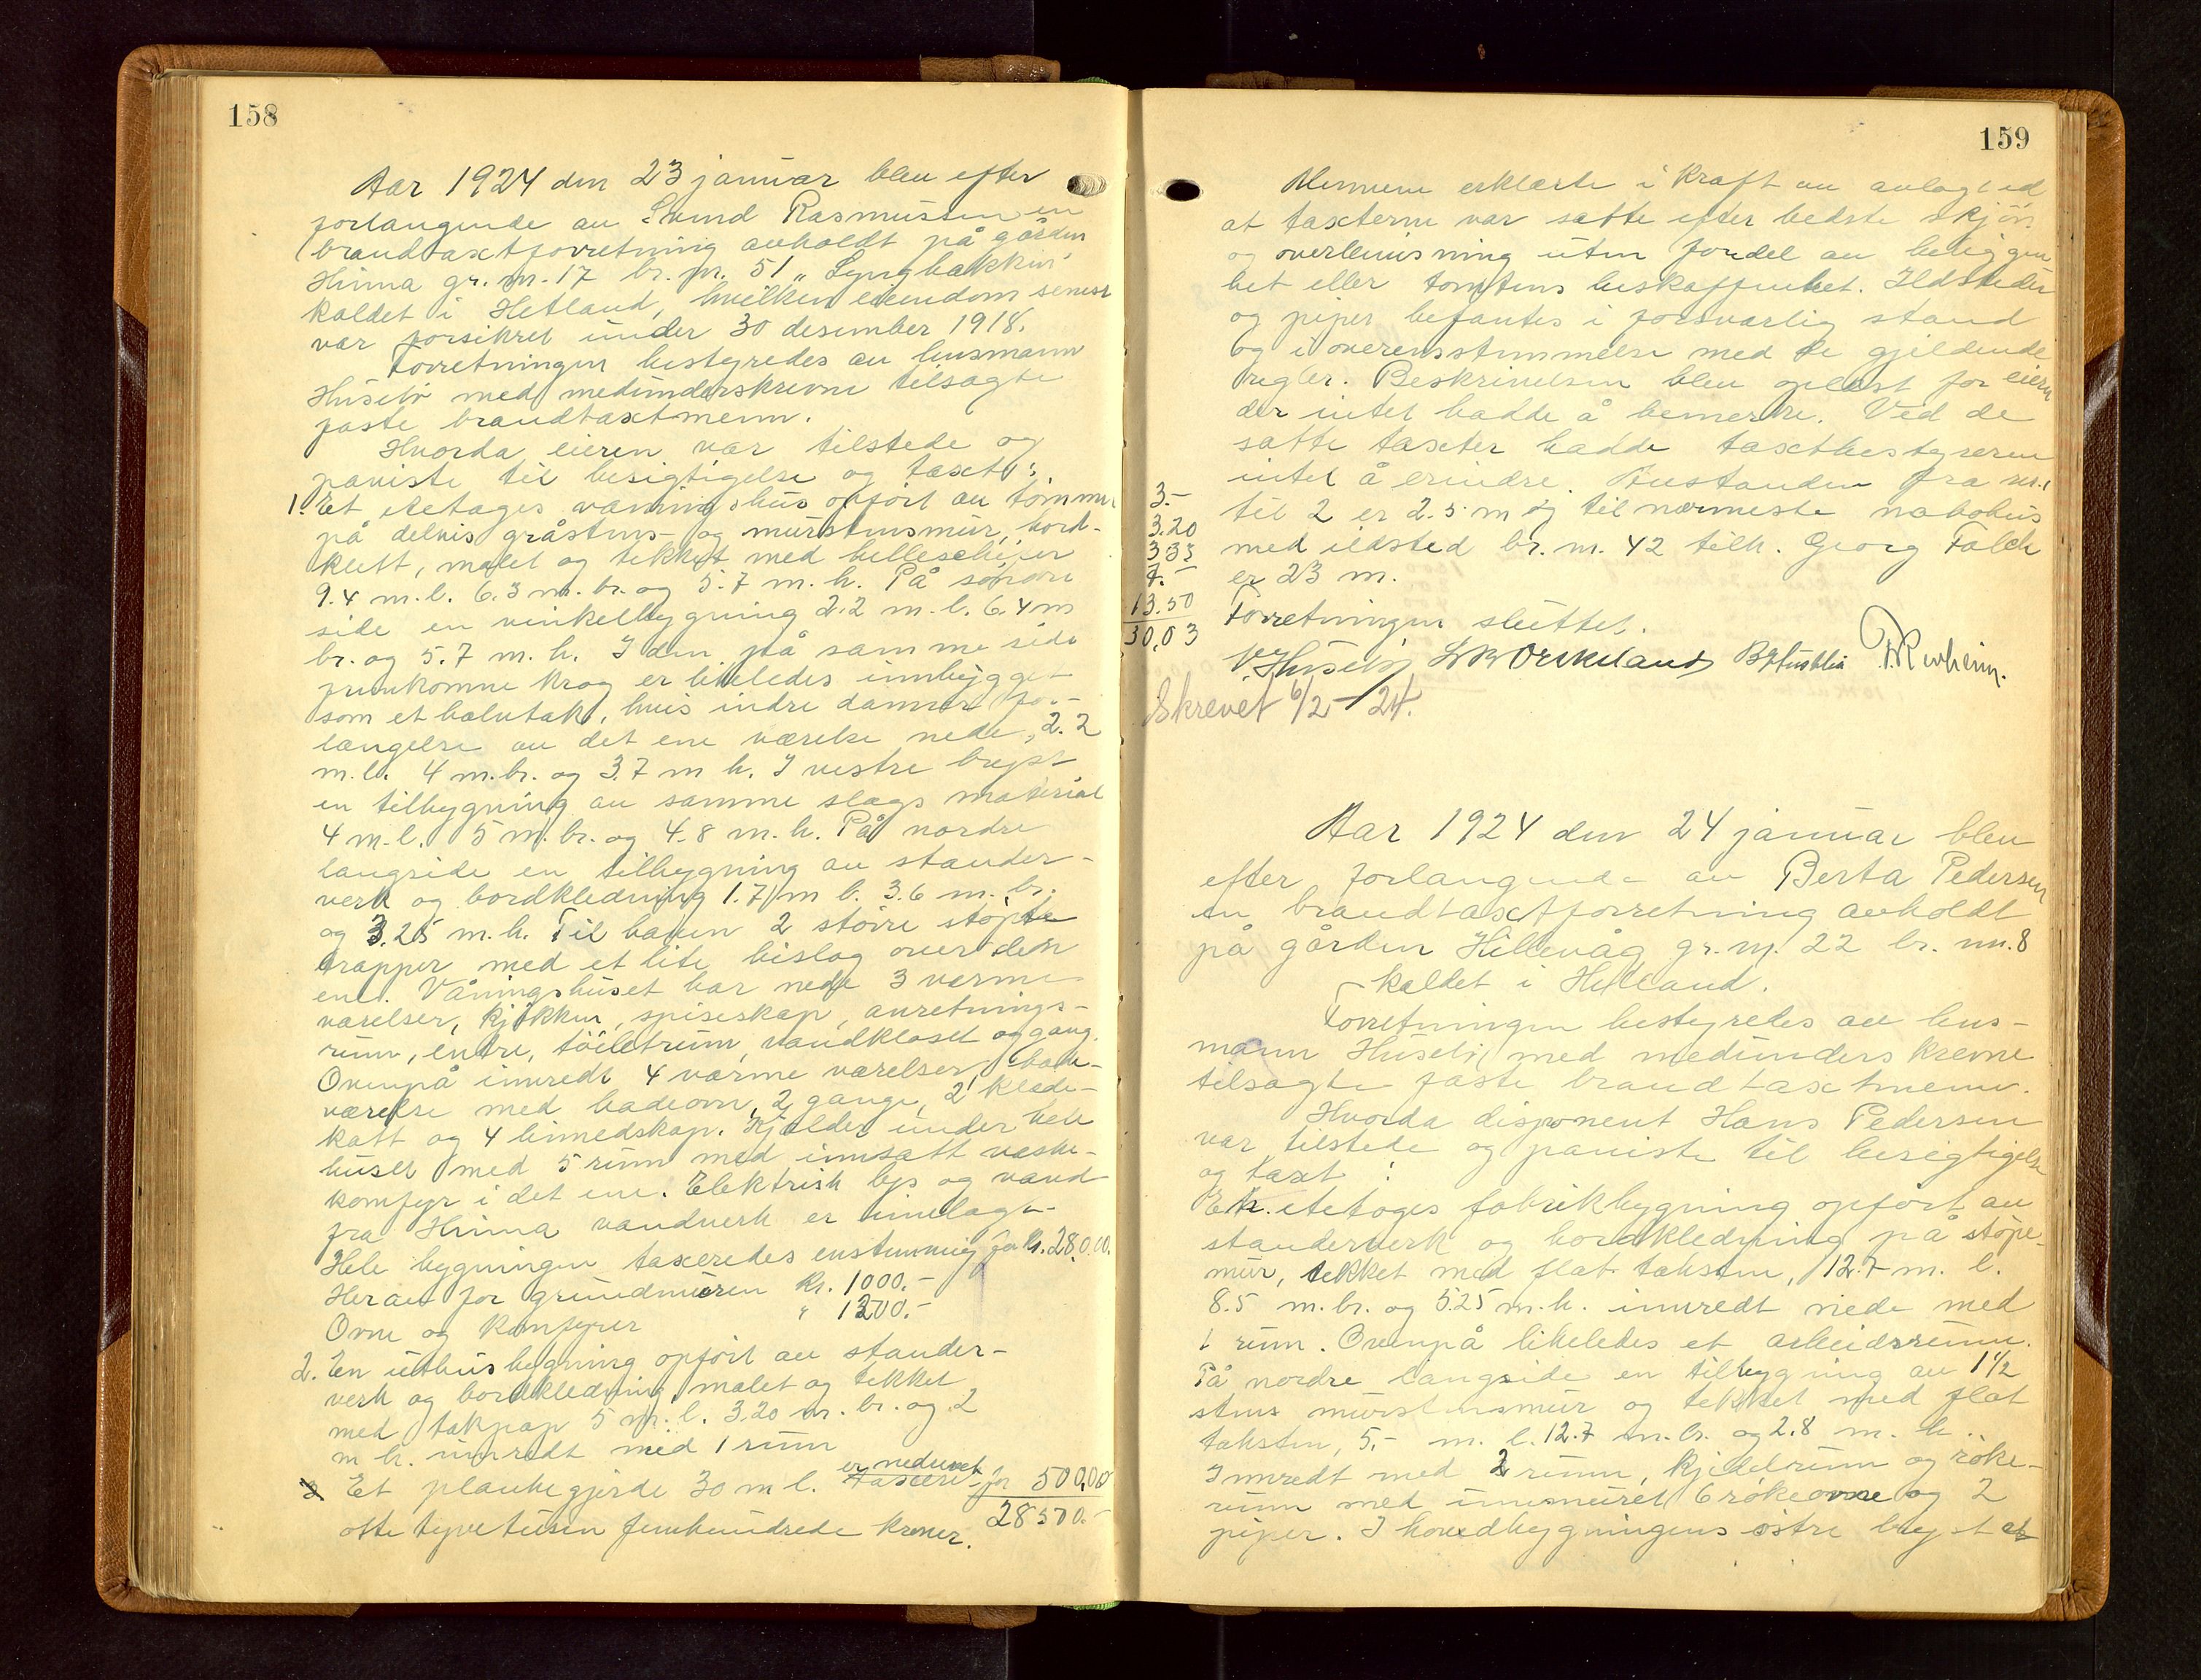 158
Aar 1924 den 23 januar blev efter
forlangende av Svend Rasmussen en
brandtaxtforretning avholdt på gården
Hinna gr. nr. 17 br. nr. 51 "Lyngbakken"
kaldet i Hetland, hvilken eiendom senest
var forsikret under 30 desember 1918.
Forretningen bestyredes av lensmann
Husebø med medunderskrevne tilsagte
faste brandtaxtmenn.
Hvorda eieren var tilstede og
paviste til besigtigelse og taxt:
1. Et etetages våningshus opført av tømmer
på delvis gråstens- og murstensmur, bord-
kledt, malet og tekket med helleschifer
9.4 m. l. 6.3 m. br. og 5.7 m. h. På søndre
side en vinkelbygning 2.2 m. l. 6.4 m
br. og 5.7 m. h. I den på samme side
fremkomne krog er likeledes innbygget
som et halvtak, hvis indre danner for-
længelse av det ene værelse nede, 2.2
m. l. 4 m. br. og 3.7 m h. I vestre bryst
en tilbygning av samme slags material
4 m. l. 5 m. br. og 4.8 m. h. På nordre
langside en tilbygning av stander-
verk og bordkledning 1.7 m l. 3.6 m. br.
og 3.25 m. h. Til haven 2 større støpte
trapper med et lite bislag over den
ene. Våningshuset har nede 3 varme
værelser, kjøkken, spiseskap, anretnings-
rum, entre, toiletrum, vandkloset og gang.
Ovenpå innredt 4 varme værelser, bade-
værelse med badeovn, 2 gange, 2 klede-
kott og 4 linnedskap. Kjelder under hele
huset med 5 rum med innsatt vaske-
komfyr i det ene. Elektrisk lys og vand
fra Hinna vandverk er innlagt.
Hele bygningen taxeredes enstemmig for kr. 28,0.00.
Herav for grundmuren kr. 1000.-
Ovne og komfyrer " 1300.-
2. En uthusbygning opført av stander-
verk og bordkledning, malet og tekket
med takpap 5 m. l. 3.20 m. br. og 2
m h. innredt med 1 rum
Et plankegjerde 30 m l. er nedrevet taxeret for 500,00
28500.-
otte tyve tusen femhundrede kroner.
159
Mennene erklærte i kraft av avlagt ed
at taxterne var satte efter bedste skjøn
og overbevisning uten fordel av beliggen
het eller tomtens beskaffenhet. Ildsteder
og piper befantes i forsvarlig stand
og i overensstemmelse med de gjeldende
regler. Beskrivelsen blev oplest for eieren
der intet hadde å bemerke. Ved de
satte taxter hadde taxtbestyreren
intet å erindre. Avstanden fra nr. 1
til 2 er 2.5 m og til nærmeste nabohus
med ildsted br. nr. 42 tilh. Georg Falck
er 23 m.
3.-
3.20
3 35
7.-
13.50
30,03
Forretningen sluttet.
V. Husebø
Skrevet 6/2-24.
Aar 1924 den 24 januar blev
efter forlangende av Berta Pedersen
en brandtaxtforretning avholdt
på gården Hillevåg gr. nr. 22 br. nr. 8
kaldet i Hetland.
Forretningen bestyredes av lens-
mann Husebø med medunderskrevne
tilsagte faste brandtaxtmenn.
Hvorda disponent Hans Pedersen
var tilstede og paviste til besigtigelse
og taxt:
En etetages fabrikbygning opført av
standerverk og bordkledning på støpe-
mur, tekket med flat taksten, 12.7 m. l.
8.5 m. br. og 5.25 m. h. innredt nede med
1 rum. Ovenpå likeledes et arbeidsrum.
På nordre langside en tilbygning av 1 1/2
stens murstensmur og tekket med flat
taksten, 5,- m. l. 12.7 m. br. og 2.8 m. h.
Innredt med 2 rum, kjedelrum og røke-
rum med innmuret 6 røkeovne og 2
piper. I hovedbygningens østre bryst et